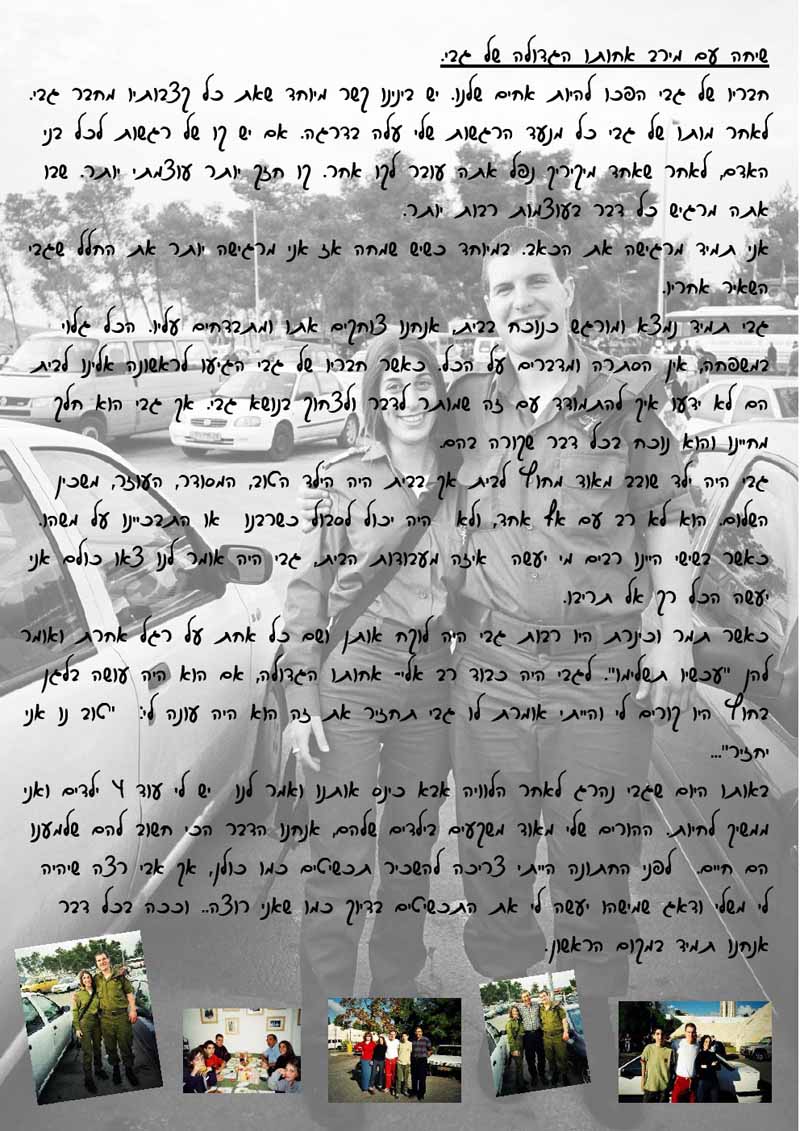 שיחה עם מירב אחותו הגדולה של גבי.
חבריו של גבי הפכו להיות אחים שלנו. יש בינינו קשר מיוחד שאת כל קצבותיו מחבר גבי.
לאחר מותו של גבי כל מנעד הרגשות שלי עלה בדרגה. אם יש קו של רגשות לכל בני
האדם, לאחר שאחד מיקיריך נפל אתה עובר לקו אחר. קו חזק יותר עוצמתי יותר. שבו
אתה מרגיש כל דבר בעוצמות רבות יותר.
אני תמיד מרגישה את הכאב. במיוחד כשיש שמחה אז אני מרגישה יותר את החלל שגבי
השאיר אחריו.
גבי תמיד נמצא ומורגש כנוכח בבית, אנחנו צוחקים אתו ומתבדחים עליו. הכל גלוי
במשפחה, אין הסתרה ומדברים על הכל. כאשר חבריו של גבי הגיעו לראשונה אלינו לבית
הם לא ידעו איך להתמודד עם זה שמותר לדבר ולצחוק בנושא גבי. אך גבי הוא חלק
מחיינו והוא נוכח בכל דבר שקורה בהם.
גבי היה ילד שובב מאוד מחוץ לבית אך בבית היה הילד הטוב, המסודר, העוזר, משכין
השלום. הוא לא רב עם אף אחד, ולא היה יכול לסבול כשרבנו או התבכיינו על משהו.
כאשר בשישי היינו רבים מי יעשה איזה מעבודות הבית, גבי היה אומר לנו צאו כולם אני
יעשה הכל רק אל תריבו.
כאשר תמר וכינרת היו רבות גבי היה לוקח אותן ושם כל אחת על רגל אחרת ואומר
להן "עכשיו תשלימו". לגבי היה כבוד רב אלי- אחותו הגדולה, אם הוא היה עושה בלגן
בחוץ היו קורים לי והייתי אומרת לו גבי תחזיר את זה הוא היה עונה לי: יטוב נו אני
יחזיר"...
באותו היום שגבי נהרג לאחר הלוויה אבא כינס אותנו ואמר לנו יש לי עוד 4 ילדים ואני
ממשיך לחיות. ההורים שלי מאוד משקעים בילדים שלהם, אנחנו הדבר הכי חשוב להם שלמענו
הם חיים. לפני החתונה הייתי צריכה להשכיר תכשיטים כמו כולן, אך אבי רצה שיהיה
לי משלי ודאג שמישהו יעשה לי את התכשיטים בדיוק כמו שאני רוצה.. וככה בכל דבר
אנחנו תמיד במקום הראשון.